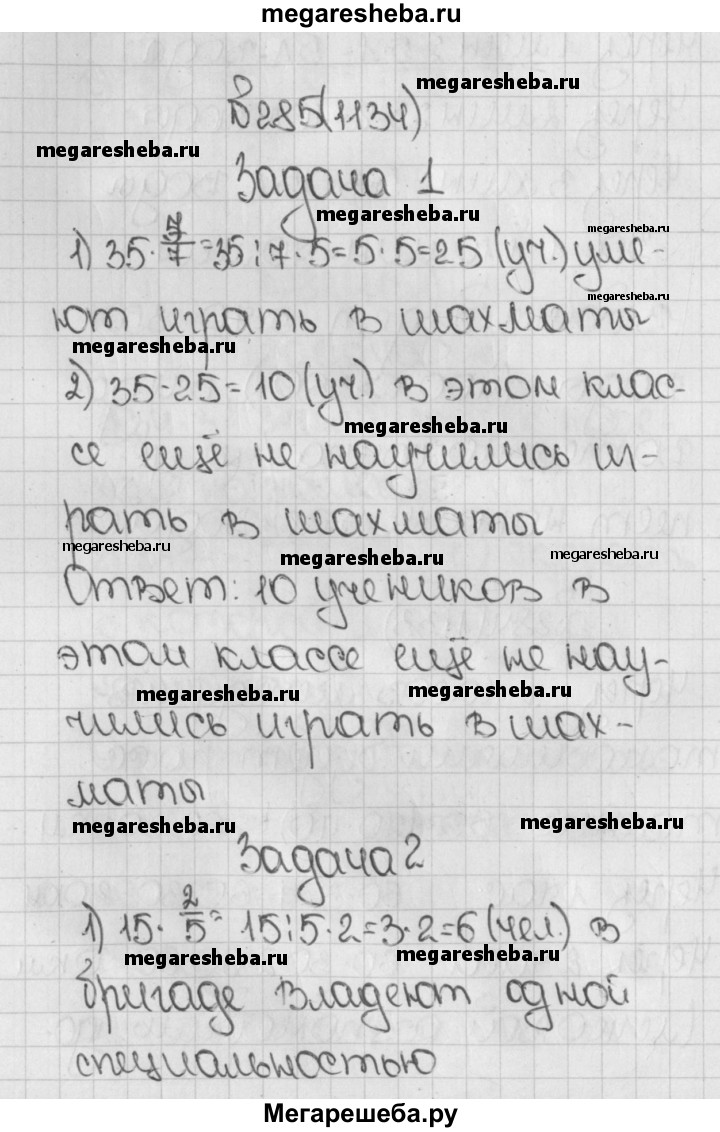 megaresheba.ru
megaresheba.ru
№285(1134)
megaresheba.ru
Задача 1
megaresheba.ru
megaresheba.ru
1) 35·5/7=35:7·5=5·5=25 (уч.) уме-
megaresheba.ru
ют играть в шахматы
megaresheba.ru
2) 35-25=10 (уч.) в этом клас-
megaresheba.ru
се ещё не научились иг-
рать в шахматы
megaresheba.ru
megaresheba.ru
megaresheba.ru
Ответ: 10 учеников в
этом классе ещё не нау-
megaresheba.ru
megaresheba.ru
чились играть в шах-
маты
megaresheba.ru
megaresheba.ru
Задача 2
1) 15·2/5=15:5·2=3·2=6 (чел.) в
megaresheba.ru
megaresheba.ru
бригаде владеют одной
специальностью
Мегарешеба.ру